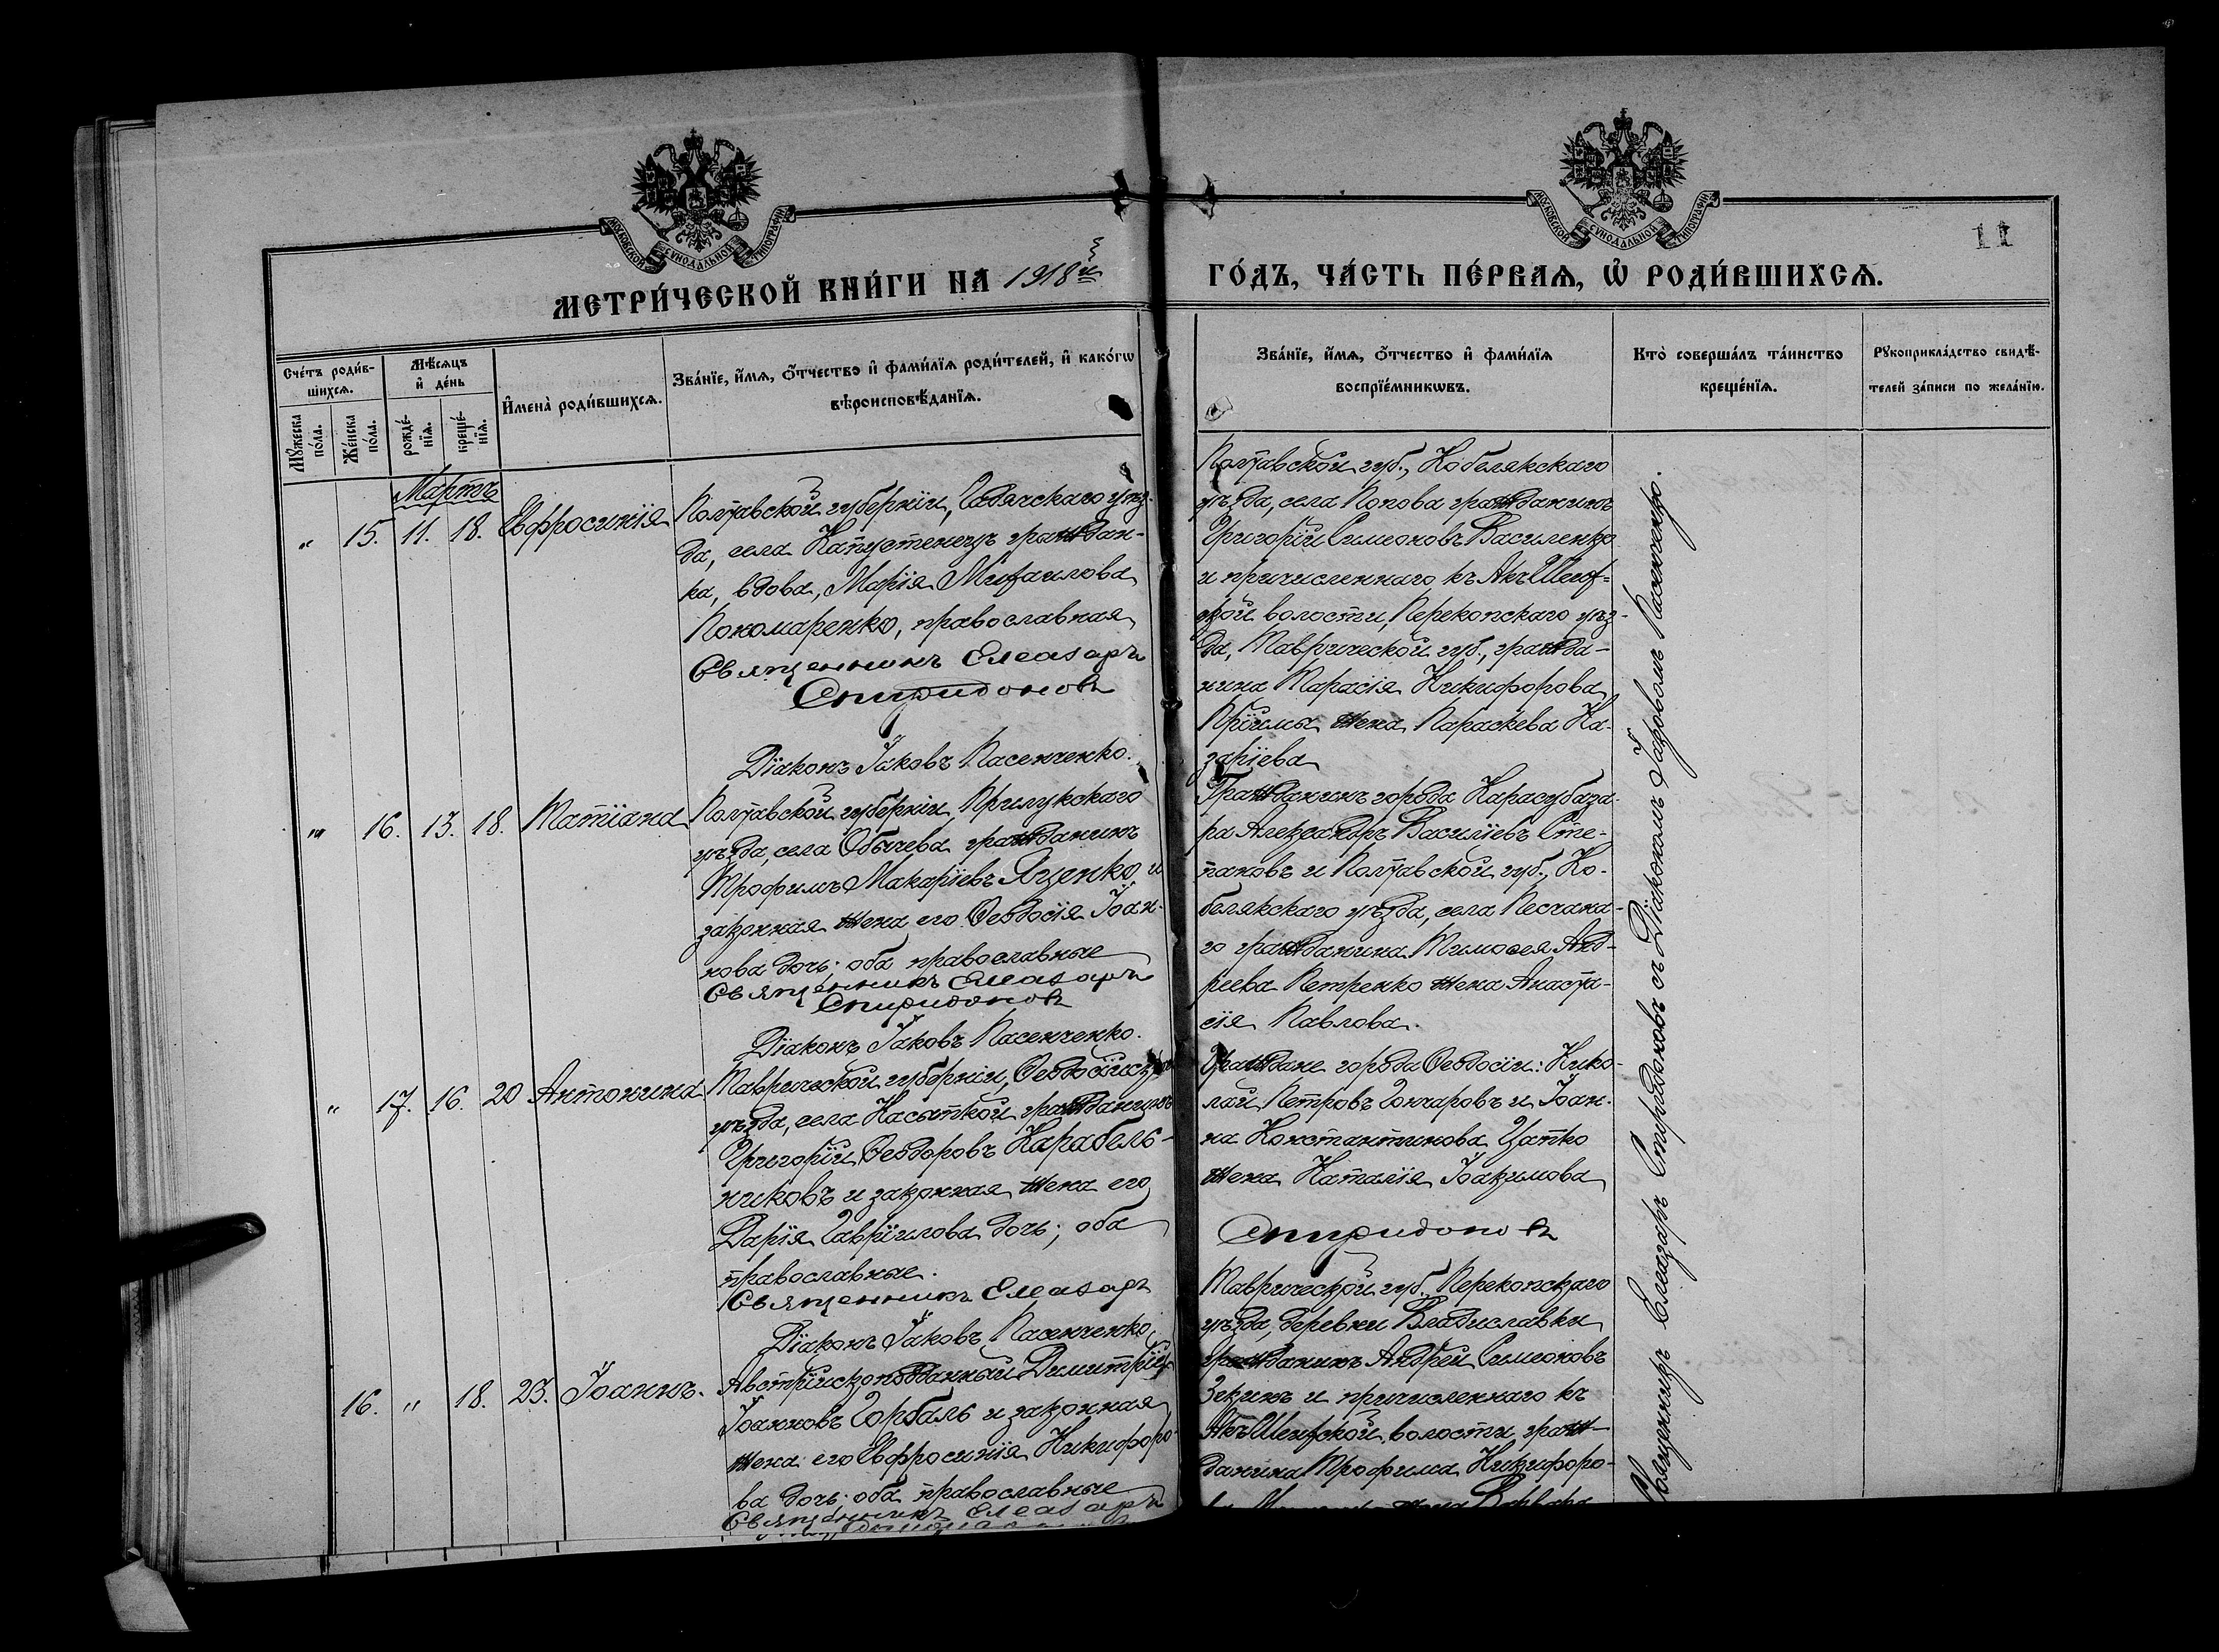 11
МОСКОВСКОЙ СѴНОДАЛЬНОЙ ТИПОГРАФІИ
МОСКОВСКОЙ СѴНОДАЛЬНОЙ ТИПОГРАФІИ
МЕТРИ́ЧЕСКОЙ КНИ́ГИ НА 1918й
ГО́ДЪ, ЧА́СТЬ ПЕ́РВАѦ, Ѡ РОДИ́ВШИХСѦ.
Сче́тъ роди́в-
шихсѧ.
Мꙋ́жеска
по́ла.
Же́нска
по́ла.
Мѣ́сѧцъ
и҆ де́нь
рожде́-
нїѧ.
креще́-
нїѧ.
И҆мена̀ роди́вшихсѧ.
Зва́нїе, и҆́мѧ, ѻ҆́тчество и҆ фами́лїѧ роди́телей, и҆ како́гѡ
вѣроисповѣ́данїѧ.
Зва́нїе, и҆́мѧ, ѻ҆́тчество и҆ фами́лїѧ
воспрїе́мникѡвъ.
Кто̀ соверша́лъ та́инство
креще́нїѧ.
Рꙋкоприкла́дство свидѣ́-
телей за́писи по жела́нїю.
Мартъ
" 15. 11. 18. Евфросинія
Полтавской губерніи, Гадячскаго уѣз-
да, села Капустенецъ граждан-
ка, вдова, Марія Михаилова
Пономаренко, православная
Священникъ Елеазаръ
Спиридоновъ
Діаконъ Іаковъ Пасенченко.
Полтавской губ., Кобелякскаго
уѣзда, села Попова гражданинъ
Григорій Симеоновъ Василенко
и причисленнаго къ Акъ-Шеих-
ской волости, Перекопскаго уѣз-
да, Таврической губ., гражда-
нина Тарасія Никифорова
Пріймы жена Параскева На-
заріева
" 16. 13. 18. Татіана
Полтавской губерніи, Прилукскаго
уѣзда, села Обычева гражданинъ
Трофимъ Макаріевъ Яценко и
законная жена его Ѳеодосія Іоан-
нова дочь; оба православные
Священникъ Елеазаръ
Спиридоновъ
Діаконъ Іаковъ Пасенченко.
Гражданинъ города Карасубаза-
ра Александръ Василіевъ Сте-
пановъ и Полтавской губ., Ко-
белякскаго уѣзда, села Песчана-
го гражданина Тимоѳея Анд-
реева Петренко жена Анаста-
сія Павлова.
" 17. 16. 20 Антонина
Таврической губерніи, Ѳеодосійскаго
уѣзда, села Насыпкой гражданинъ
Григорій Ѳеодоровъ Карабель-
никовъ и законная жена его
Дарія Гавріилова дочь; оба
православные.
Священникъ Елеазаръ
Діаконъ Іаковъ Пасенченко
Граждане города Ѳеодосіи: Нико-
лай Петровъ Гончаровъ и Іоан-
на Константинова Цапко
жена Наталія Іоакимова
Спиридоновъ
16. " 18. 23. Іоаннъ.
Австрійскоподданный Димитрій
Іоанновъ Горбаль и законная
жена его Евфросинія Никифоро-
ва дочь; оба православные
Священникъ Елеазаръ
Таврической губ., Перекопскаго
уѣзда, деревни Владиславки
гражданинъ Андрей Симеоновъ
Зекинъ и причисленнаго къ
Акъ-Шеихской волости граж-
данина Трофима Никифоро-
жена Варвара
Священникъ Елеазаръ Спиридоновъ съ Діакономъ Іаковомъ Пасенченко.